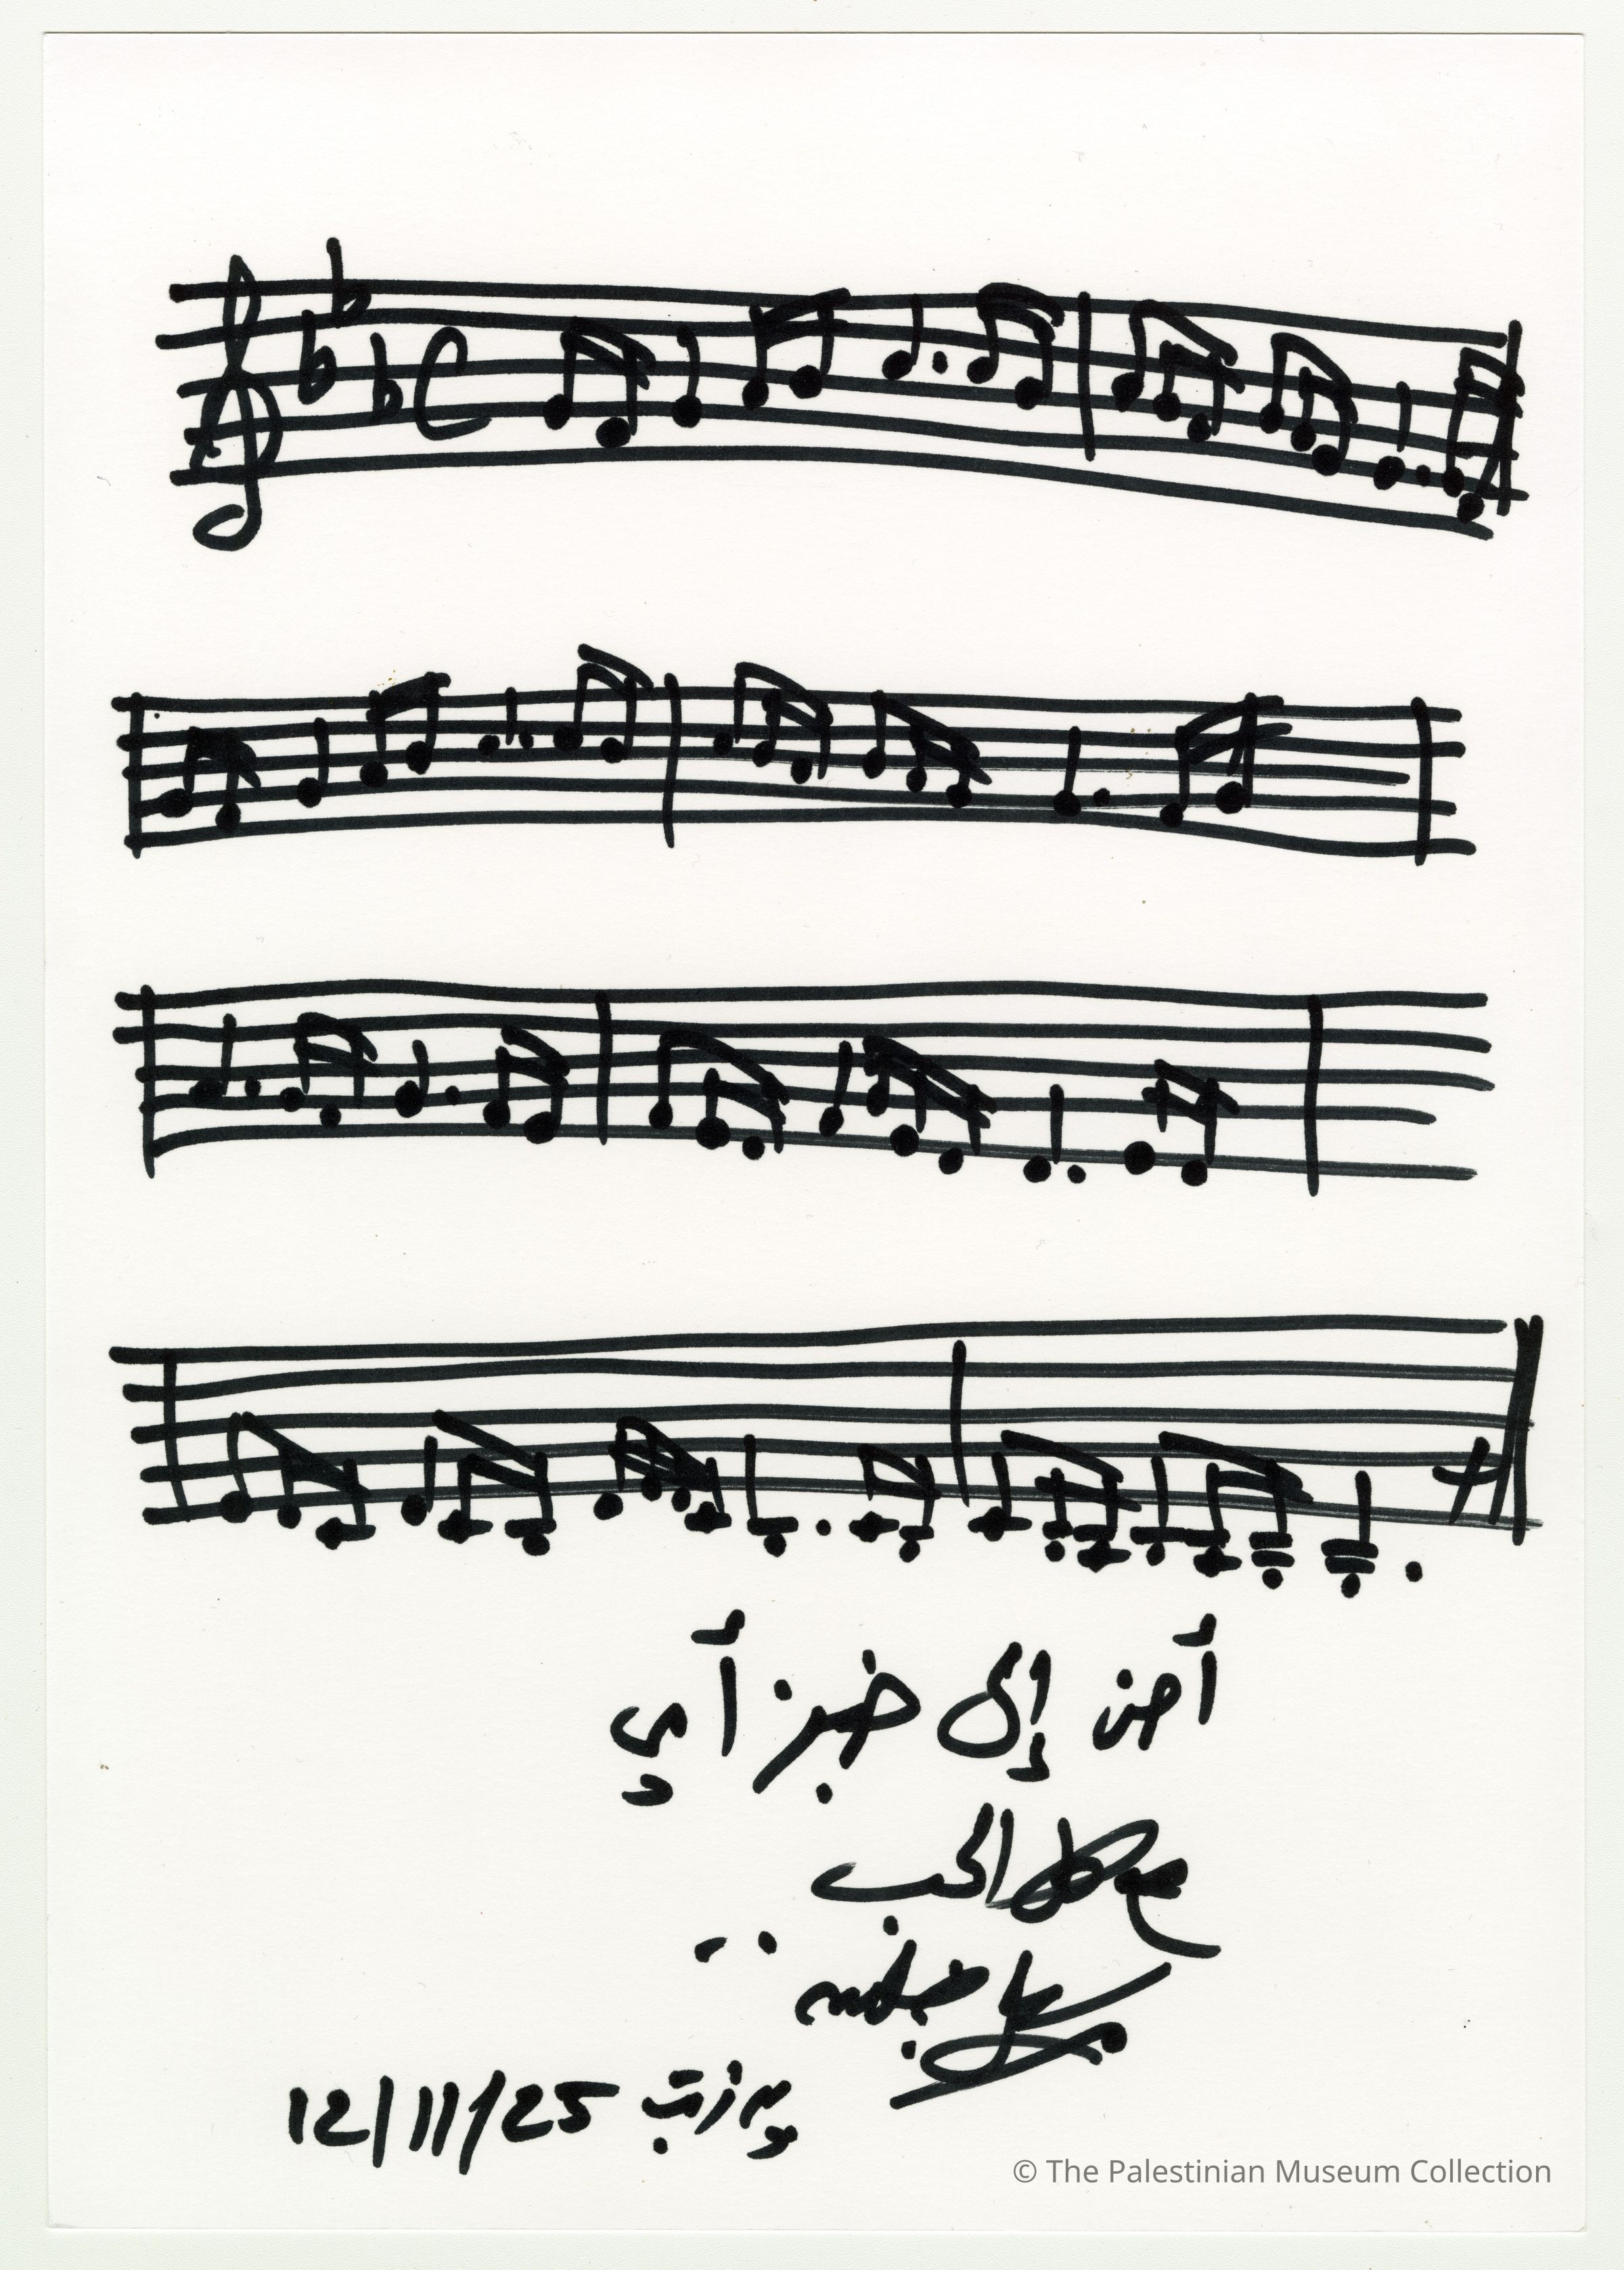 أحن إلى خبز أمي
مع كل الحب
مرسيل خليفة
بيرزيت 12/11/25
© The Palestinian Museum Collection